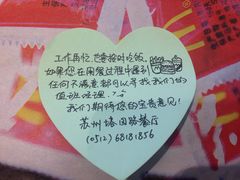 工作再忙,也要按时吃饭,
如果您在用餐过程中遇到
任何不满意都可以寻找我们的
值班经理.
我们期待您的宝贵意见!
苏州 路餐厅
(0512) 68181856